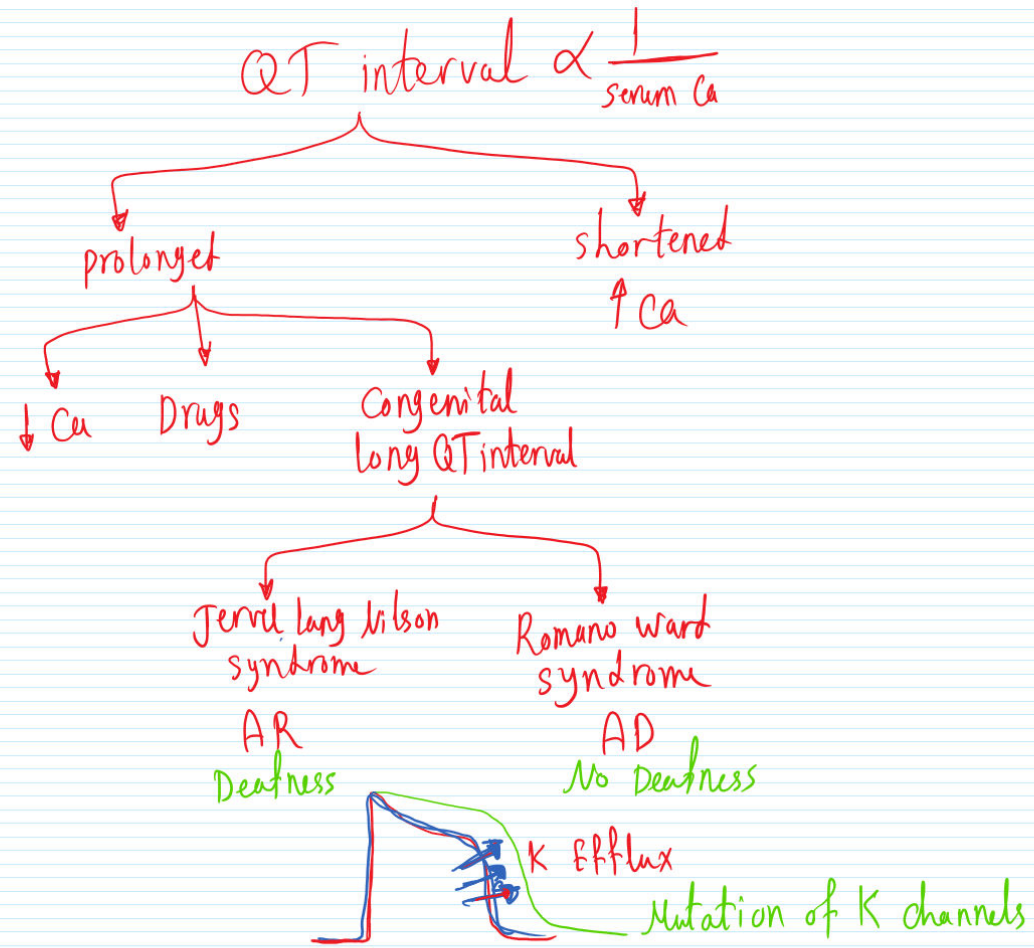 QT interval ∝ 1 / serum Ca
prolonged
shortened
↑ Ca
↓ Ca
Drugs
Congenital
long QT interval
Jervil lang Nilson
syndrome
Romano ward
syndrome
AR
AD
Deafness
No Deafness
K Efflux
Mutation of K channels